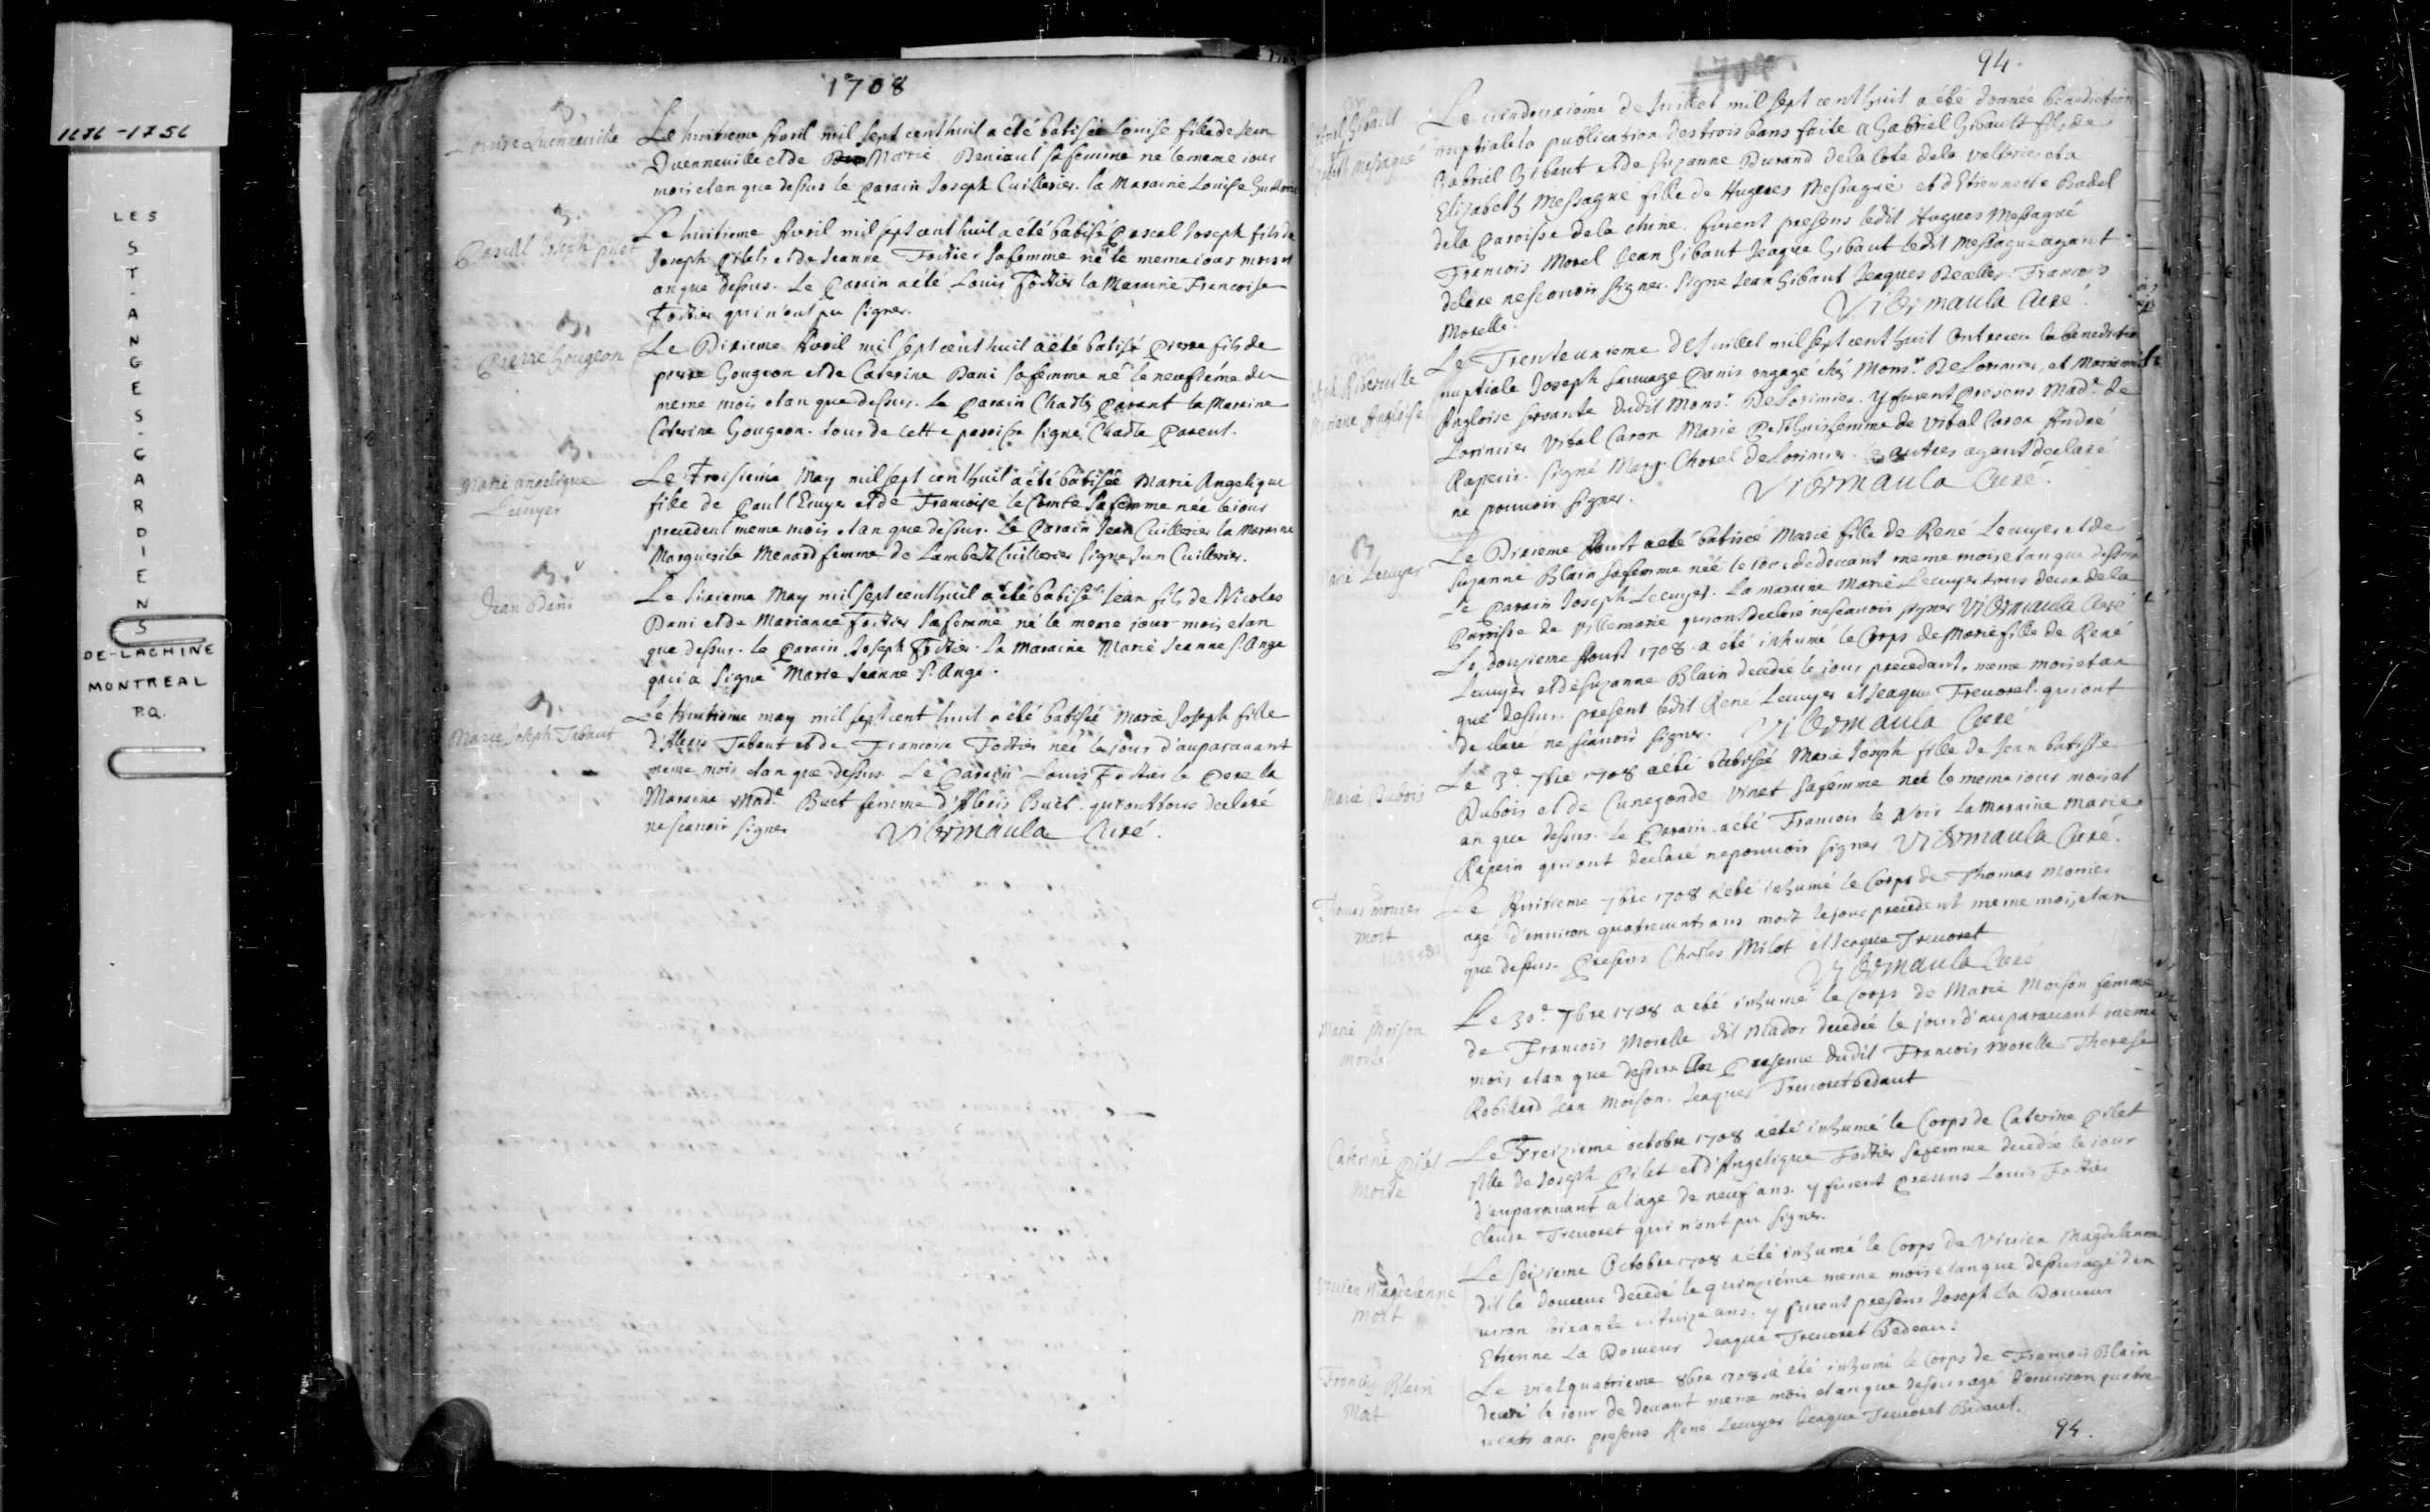 1676-1756
LES
ST-ANGES-GARDIENS
DE-LACHINE
MONTREAL
P.Q.
1708
B.
Louise Quenneville
Le huitieme Avril mil sept cent huit a été batisée Louise fille de Jean
Quenneville et de Marie Deniaul sa femme ne le meme iour
mois et an que dessus le parain Joseph Cuillerier. la Maraine Louise
B.
Pascal Joseph pilet
Le huitieme Avril mil sept cent huit a été batisé Pascal Joseph fils de
Joseph Pilet et de Jeanne Fortier sa femme né le meme iour mois et
an que dessus. Le Parain a été Louis Fortier la Maraine Francoise
Fortier qui n'ont pu signer.
B.
Pierre Gougeon
Le Dixieme Avril mil sept cent huit a été batisé pierre fils de
pierre Gougeon et de Caterine Dani sa femme né le neufiéme du
meme mois et an que dessus. Le Parain Charles Parent la Maraine
Caterine Gougeon. tous de cette paroisse signé Charle Parent.
B.
Marie angelique
Lecuyer
Le Troisieme May mil sept cent huit a été batisée Marie Angelique
fille de Paul l'Ecuyer et de Francoise le Comte sa femme née le iour
precedent meme mois et an que dessus. Le Parain Jean Cuillerier la Maraine
Marguerite Menard femme de Lambert Cuillerier signe Jean Cuillerier.
B.
Jean Dani
Le Sixieme May mil sept cent huit a été batisé Jean fils de Nicolas
Dani et de Marianne fortier sa femme né le meme jour mois et an
que dessus. le Parain Joseph Fortier. la Maraine Marie Jeanne St. Ange
qui a signé Marie Jeanne St. Ange.
B.
Marie Joseph Tabaut
Le Huitieme may mil sept cent huit a été batisée Marie Joseph fille
d'Alexis Tabaut et de Francoise Fortier née le iour d'auparavant
meme mois et an que dessus. Le Parain Louis Fortier le Pere la
Maraine Made. Buet femme d'Alexis Buet. qui ont tous declaré
ne scavoir signer Vilermaula Curé.
1708.
94.
M
Gabriel Gibault
Elizabeth Messagué
Le vindeuxiéme de Juillet mil sept cent huit a été donnée benediction
nuptiale la publication des trois bans faite a Gabriel Gibault fils de
Gabriel Gibaut et de Suzanne Durand de la Cote de la valterie et a
Elizabeth Messagué fille de Hugues Messagué et d'Etiennette Badel
de la Paroisse de la chine. furent presens ledit Hugues Messagué
Francois Morel Jean Gibaut Jeaque Gibaut ledit Messague ayant
delare ne scavoir signer. signe Jean Gibaut Jeaques Francois
Morelle. Vilermaula Curé.
M
Mariane Angloise
Le Trente unieme de Juillet mil sept cent huit Ont receu la benediction
nuptiale Joseph sauvage Panis engagé chés Monsr. DeLorimier, et Marie
Angloise servante dudit Monsr. DeLorimier. y furent Presens Made. de
Lorimier Vital Caron Marie Perthuis femme de Vital Caron André
Rapein. signé Marg. Chorel deLorimier. autres ayant declaré
ne pouvoir signer. Vilermaula Curé.
B
Marie Lecuyer
Le Dixieme Aoust a eté batisée Marie fille de René Lecuyer et de
Suzanne Blain sa femme néé le iour dedevant meme mois et an que dessus
Le Parain Joseph Lecuyer. La maraine Marie Lecuyer tous deux de la
Parroisse de Villemarie qui ont declare ne scavoir signer Vilermaula Curé
Le douzieme Aoust 1708. a eté inhumé le Corps de Marie fille de René
Lecuyer et de Suzanne Blain decedée le iour precedant. meme mois et an
que dessus. present ledit René Lecuyer et Jeaque Trevoret. qui ont
declaré ne scavoir signer. Vilermaula Curé
Marie Dubois
Le 3e. 7bre 1708 a eté batisée Marie Joseph fille de Jean batisse
Dubois et de Cunegonde Vinet sa femme née le meme iour mois et
an que dessus. le Parain a eté Francois le Noir la Maraine Marie
Rapein qui ont declaré ne pouvoir signer Vilermaula Curé.
S
Thomas monier
mort
Le Huitieme 7bre 1708 a eté inhumé le Corps de Thomas Monier
agé d'environ quatrevints ans mort le jour precedent meme mois et an
que dessus. Presens Charles Milot et Jeaque Trevoret
Vilermaula Curé
S
Marie Moison
morte
Le 30e. 7bre 1708 a eté inhumé le Corps de Marie Moison femme
de Francois Morelle dit Mador decedée le jour d'auparavant meme
mois et an que dessus. En Presence dudit Francois Morelle Therese
Robillard Jean Moison. Jeaques Trevoret bedaut
S
Caterine Pilet
Morte
Le Treizieme octobre 1708 a eté inhumé le Corps de Caterine Pilet
fille de Joseph Pilet et d'Angelique Fortier sa femme decedée le iour
d'auparavant a l'age de neuf ans. y furent Presens Louis Fortier
Claude Trevoret qui n'ont pu signer.
S
Vivien Magdelenne
mort
Le Seizieme Octobre 1708 a eté inhumé le Corps de Vivien Magdelenne
dit la Douceur decedé le quinziéme meme mois et an que dessus agé d'en
viron soixante et ans. y furent presens Joseph La Douceur
Etienne La Douceur Jeaque Trevoret Bedeau.
S
Francois Blain
Mort
Le vint quatrieme 8bre 1708 a eté inhumé le Corps de Francois Blain
decedé le iour de devant meme mois et an que dessus agé d'environ quatre
vints ans. presens René Lecuyer Jeaque Trevoret Bedaut.
94.